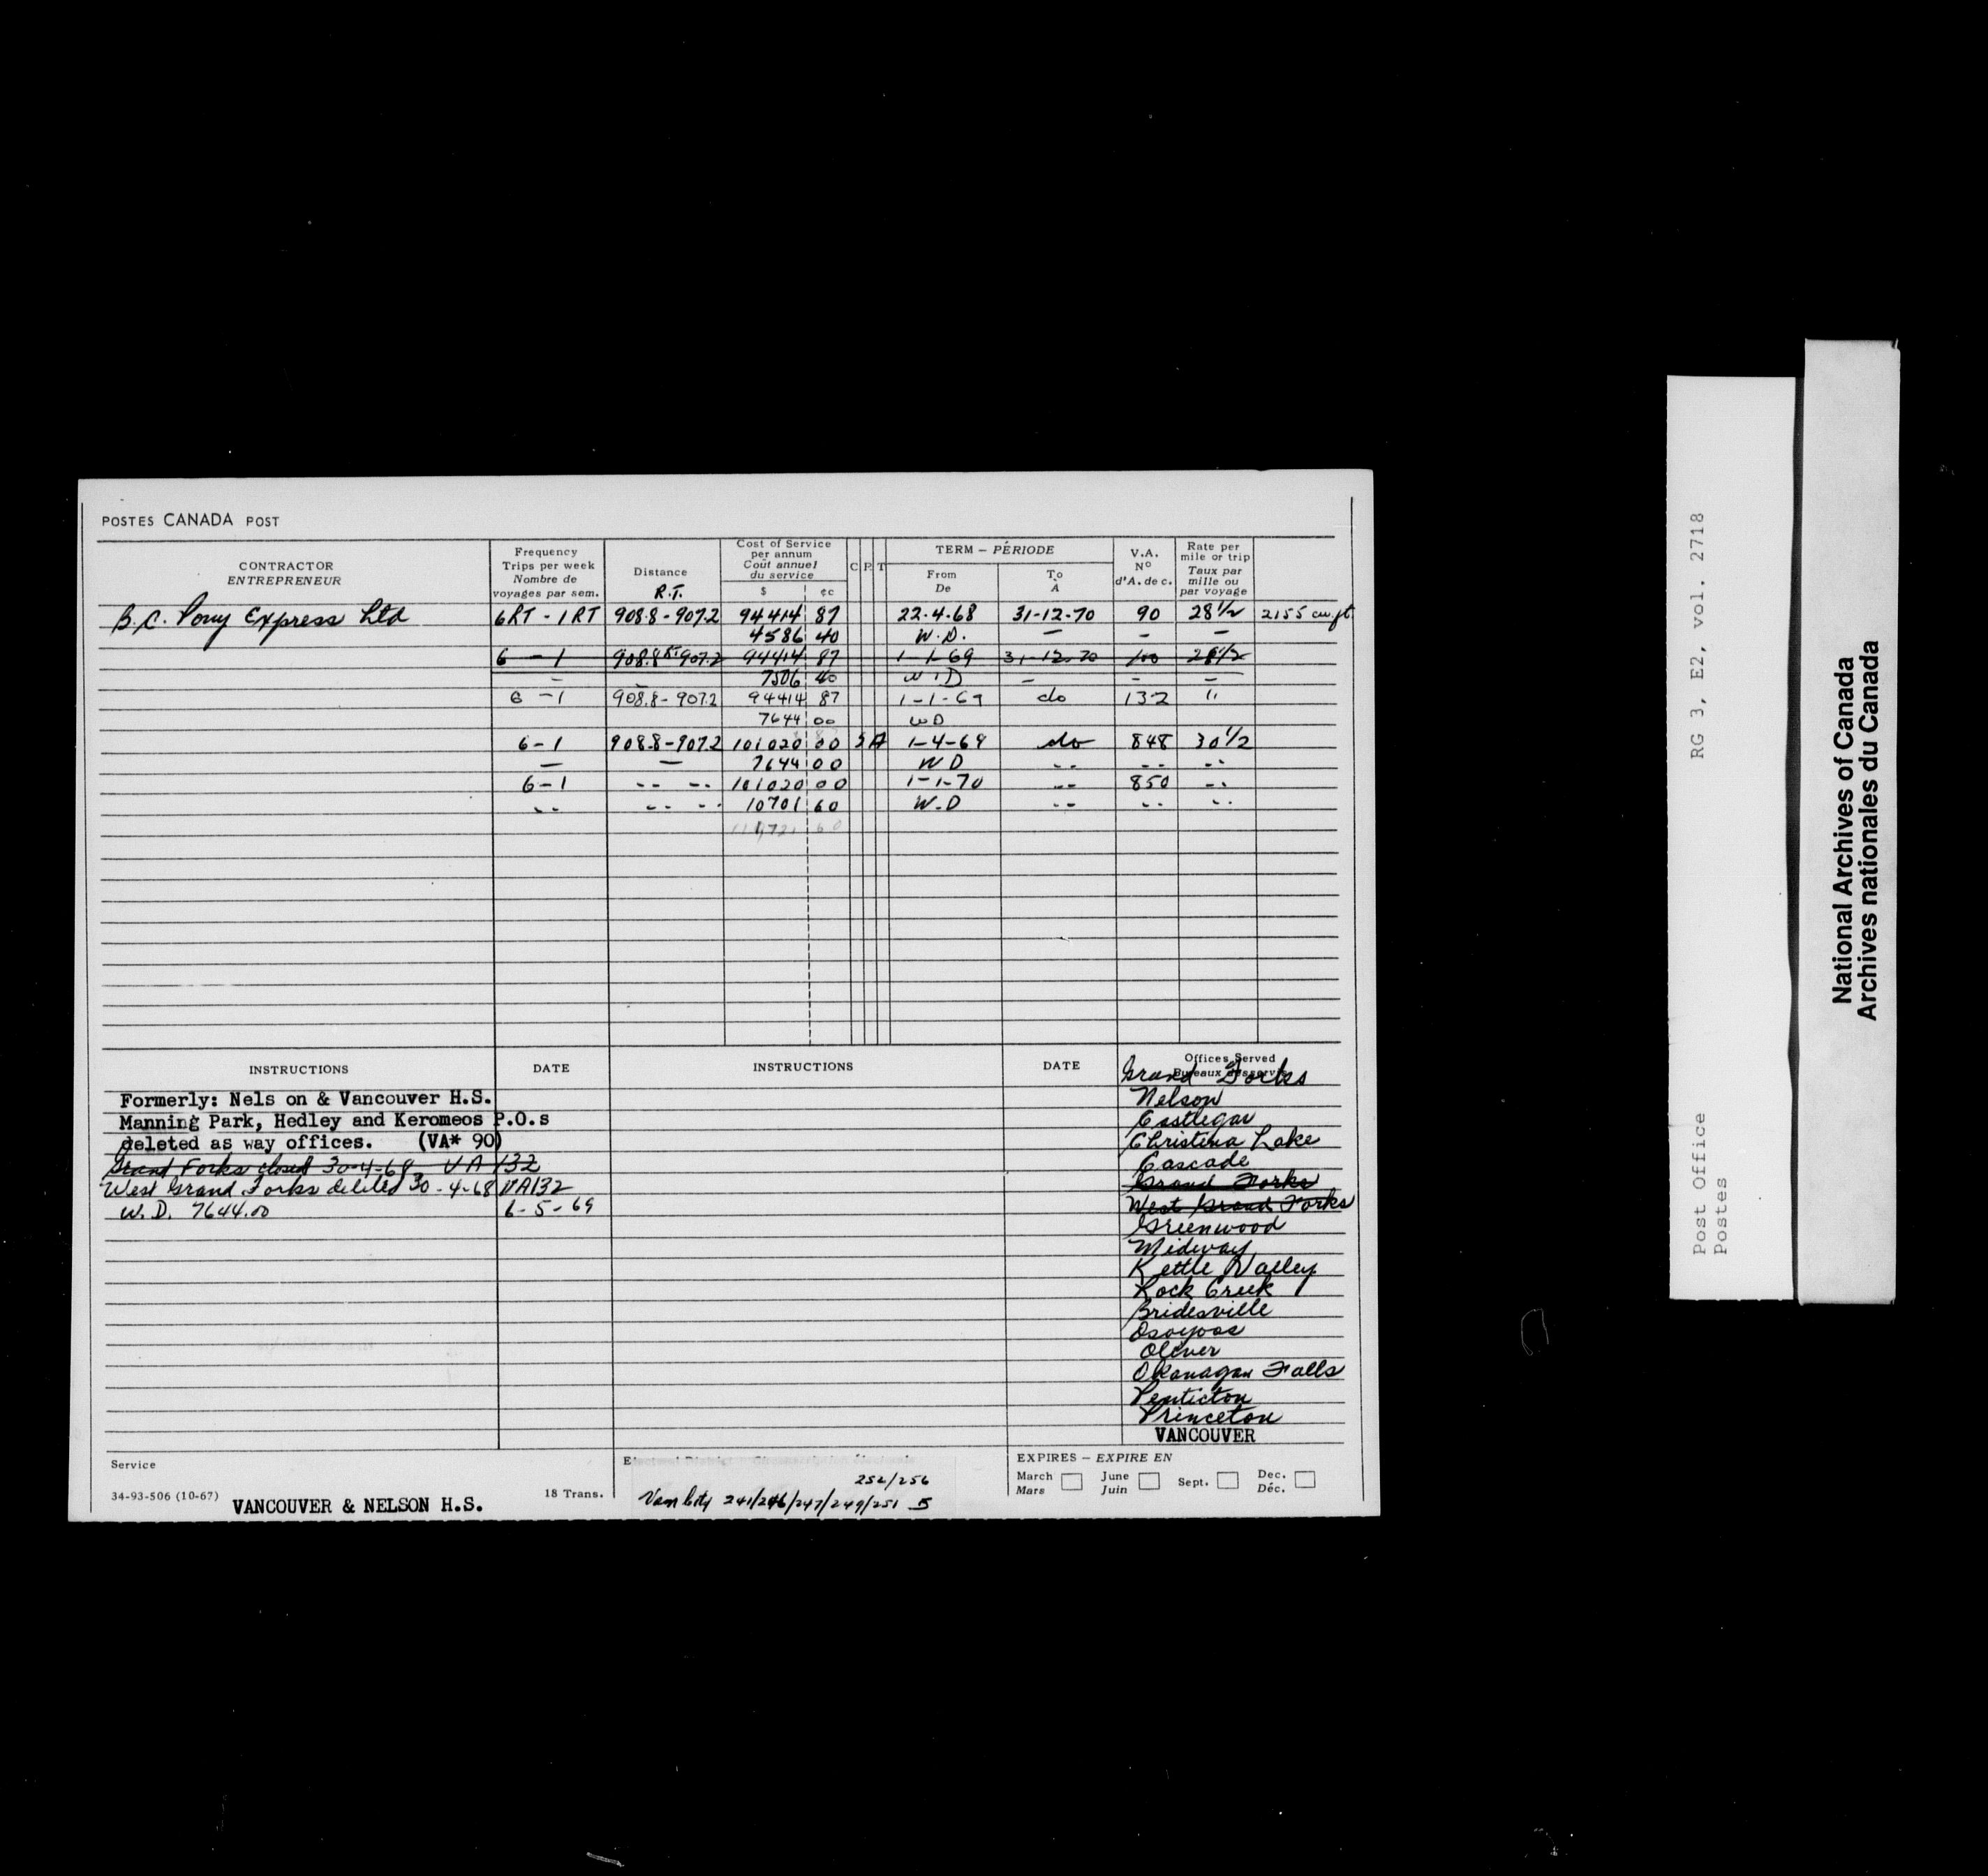 POSTES CANADA POST
CONTRACTOR
ENTREPRENEUR
Frequency
Trips per week
Nombre de
voyages par sem.
Distance
R.T.
Cost of Service
per annum
Coût annuel
du service
$ ¢c
C P. T
TERM – PÉRIODE
From
De
To
À
V.A.
Nº
d'A. de c.
Rate per
mile or trip
Taux par
mille ou
par voyage
B.C. Pony Express Ltd 6RT - 1RT 908.8 - 907.2 94414 87 22.4.68 31-12-70 90 28 1/2 2155 cu. ft.
4586 40 W.D. — – –
6 – 1 908.8 907.2 94414 87 1-1-69 31-12-70 100 28 1/2
– – 7506 40 W.D – – –
6 - 1 908.8 - 907.2 94414 87 1-1-69 do 132 "
7644 00 WD
6-1 908.8 - 907.2 101020 00 1-4-69 do 848 30 1/2
— — 7644 00 WD -- -- --
6-1 -- -- 101020 00 1-1-70 -- 850 --
-- -- -- 10701 60 W.D -- -- --
111,721 60
INSTRUCTIONS DATE INSTRUCTIONS DATE Offices Served
Bureaux desservis
Formerly: Nels on & Vancouver H.S.
Manning Park, Hedley and Keromeos P.O.s
deleted as way offices. (VA* 90)
Grand Forks closed 30-4-68 VA 132
West Grand Forks deleted 30-4-68 VA132
W.D. 7644.00 6-5-69
Grand Forks
Nelson
Castlegar
Christina Lake
Cascade
Grand Forks
West Grand Forks
Greenwood
Midway
Kettle Valley
Rock Creek
Bridesville
Osoyoos
Oliver
Okanagan Falls
Penticton
Princeton
VANCOUVER
Service
34-93-506 (10-67) VANCOUVER & NELSON H.S. 18 Trans.
Electoral District
252/256
Van City 241/246/247/249/251 B
EXPIRES – EXPIRE EN
March
Mars
June
Juin
Sept.
Dec.
Déc.
RG 3, E2, vol. 2718
Post Office
Postes
National Archives of Canada
Archives nationales du Canada